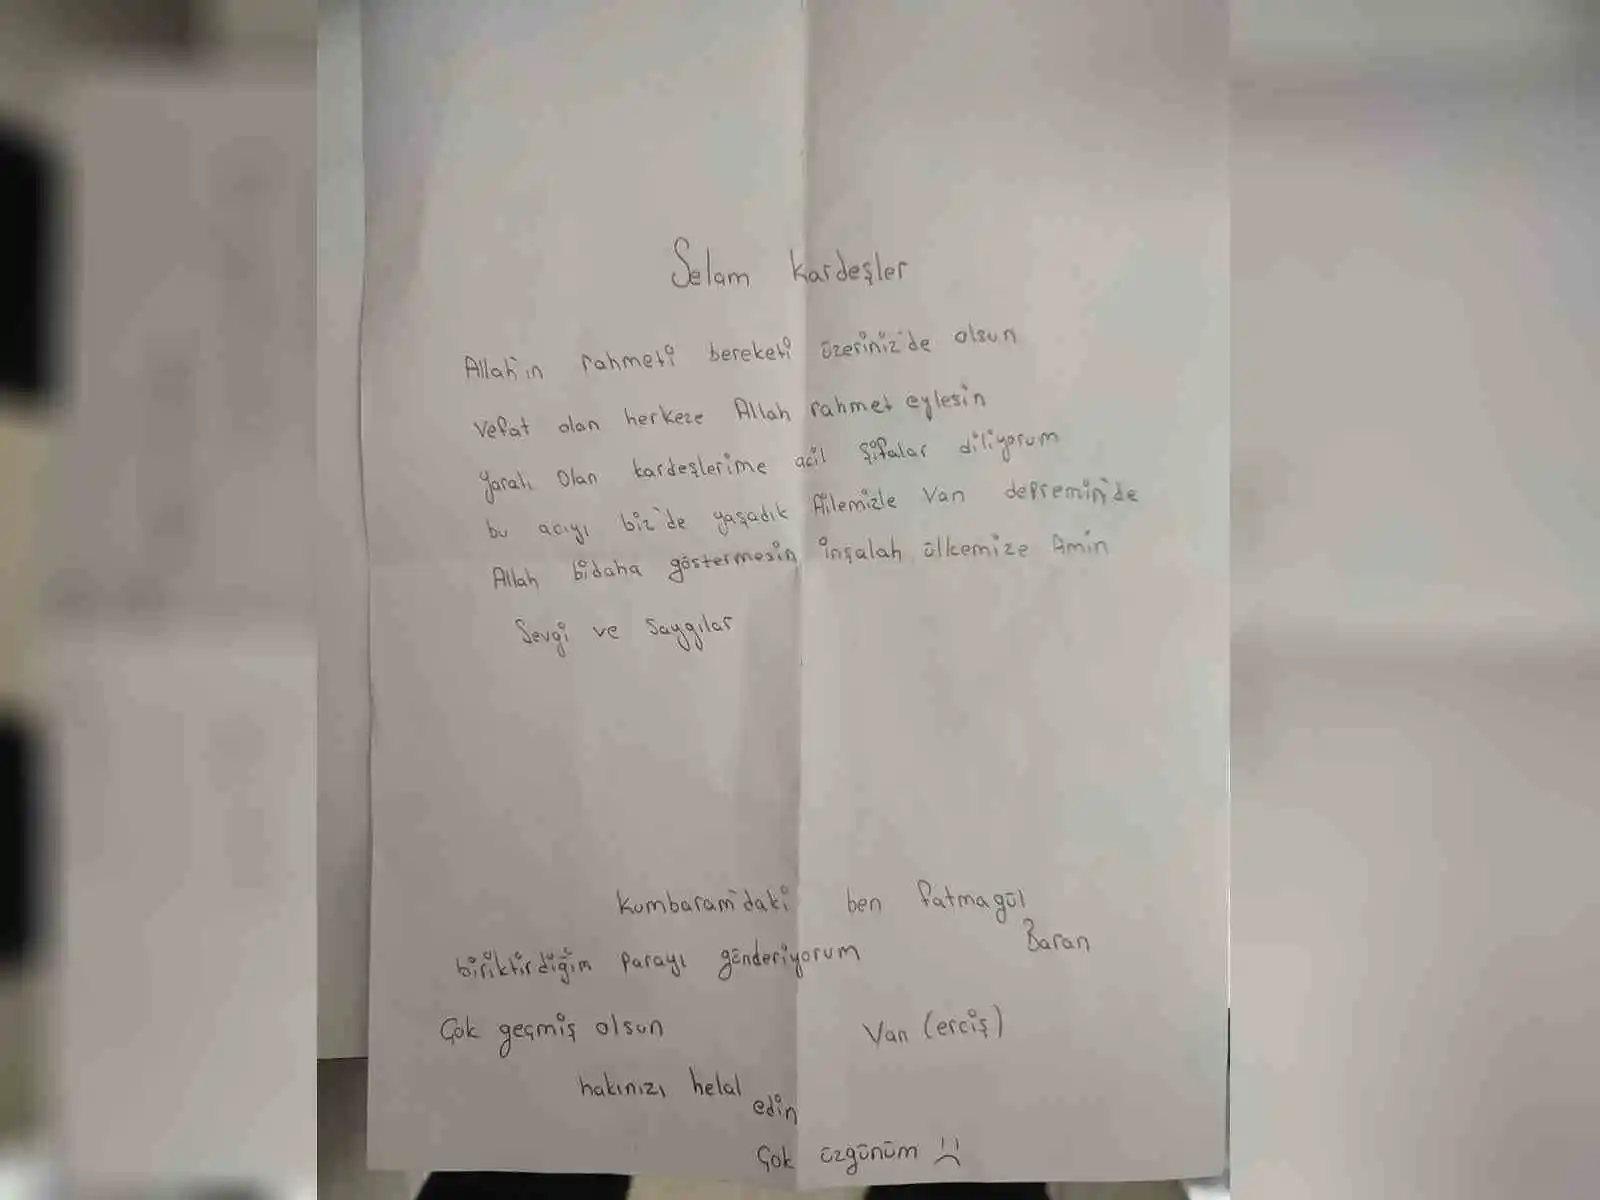 Selam kardeşler
Allah'ın rahmeti bereketi üzeriniz'de olsun
vefat olan herkeze Allah rahmet eylesin
yaralı olan kardeşlerime acil şifalar diliyorum
bu acıyı biz'de yaşadık Ailemizle Van depremin'de
Allah bidaha göstermesin inşalah ülkemize Amin
Sevgi ve Saygılar
Kumbaram'daki
biriktirdiğim parayı gönderiyorum
Çok geçmiş olsun
hakınızı helal
edin
Çok üzgünüm :(
ben fatmagül
Baran
Van (erciş)